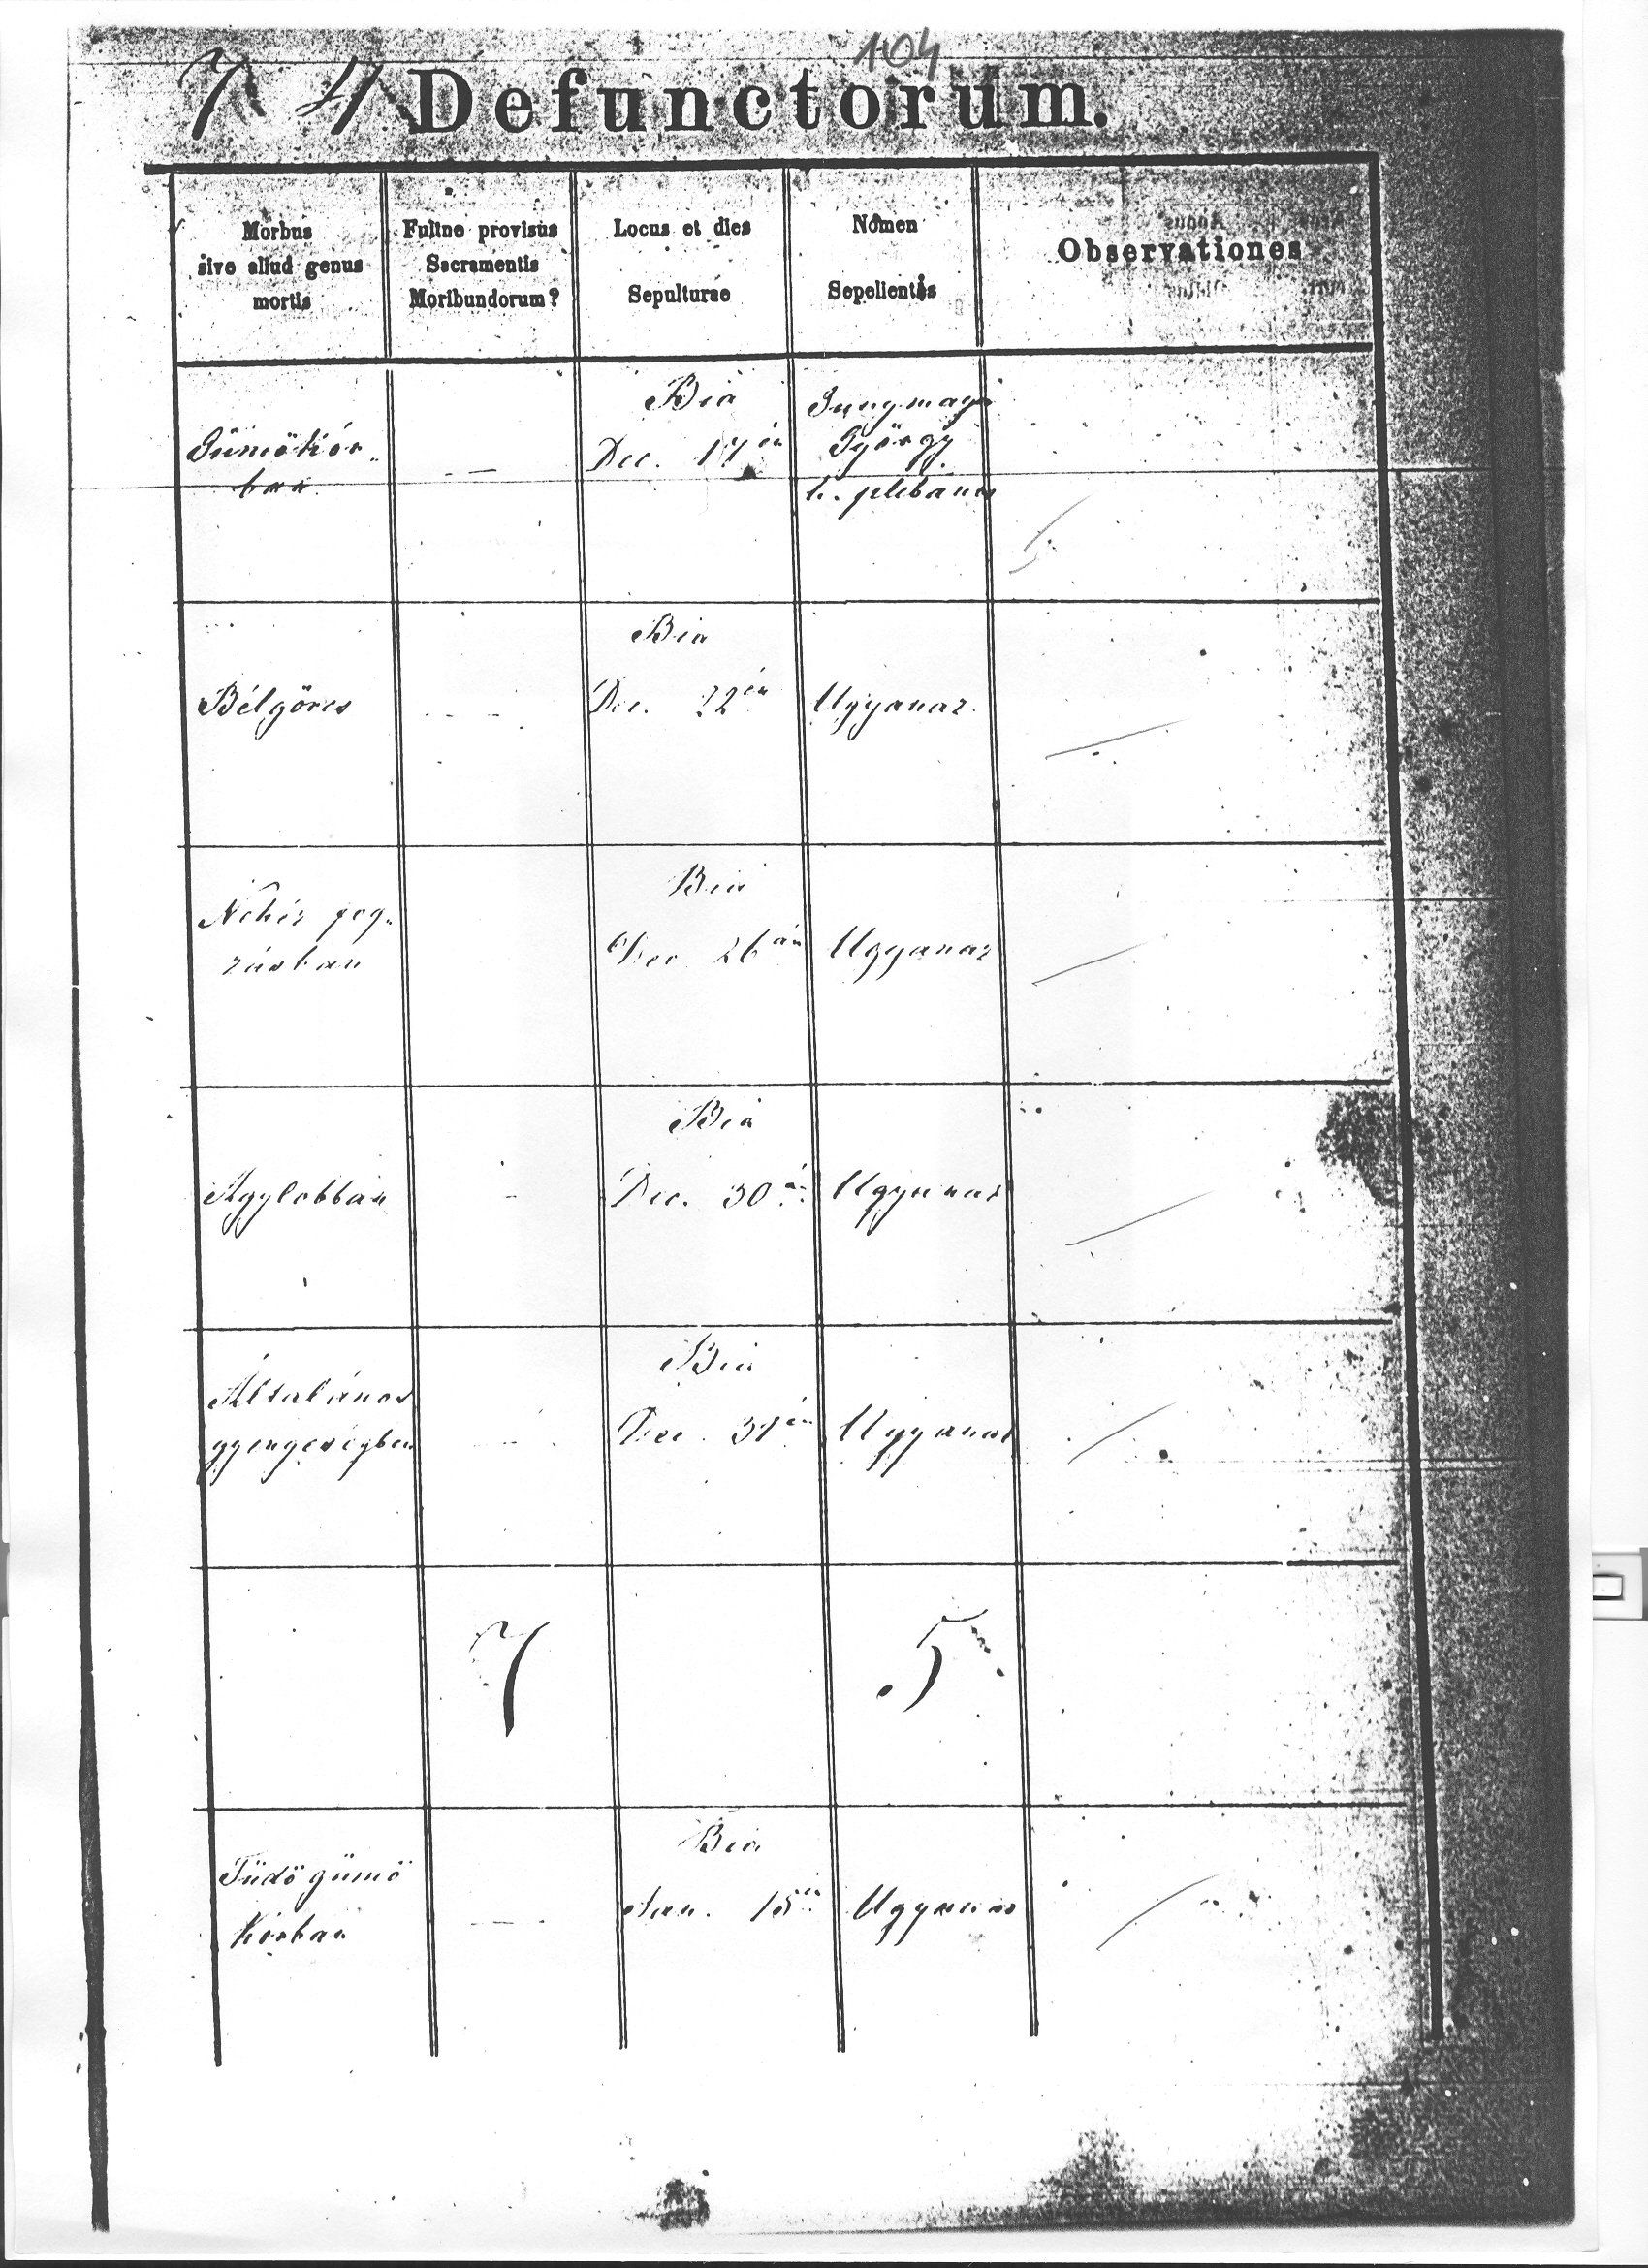 104
7 4 Defunctorum.
Morbus
sive aliud genus
mortis
Fuitne provisus
Sacramentis
Moribundorum?
Locus et dies
Sepulturae
Nomen
Sepelientis
Observationes
Gümőkór-
ban
Bia
Dec. 17én
György
h. plebanos
Bélgörcs
Bia
Dec. 22én
Ugyanaz
Nehéz fog-
zásban
Bia
Dec 26án
Ugyanaz
Agylobban
Bia
Dec. 30án
Ugyanaz
Általános
gyengeségben
Bia
Dec. 31én
Ugyanaz
7 5
Tüdő gümő
kórban
Bia
Jan. 15én
Ugyanaz